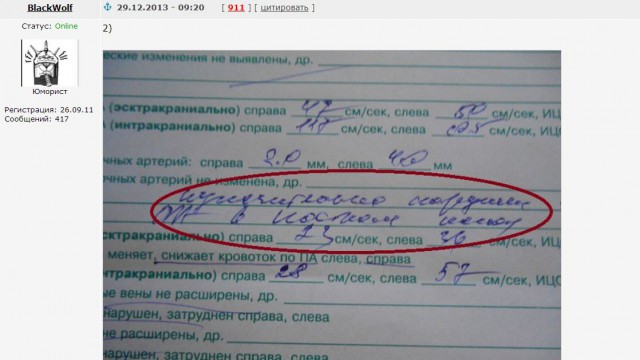 BlackWolf
29.12.2013 - 09:20 [ 911 ] [ цитировать ]
Статус: Online
Юморист
Регистрация: 26.09.11
Сообщений: 417
2)
еские изменения не выявлены, др.
(эсктракраниально) справа 47 см/сек, слева 50 см/сек, ИЦ
(интракраниально) справа см/сек, слева см/сек, ИЦ
чных артерий: справа 2.0 мм, слева 4.0 мм
чных артерий не изменена, др.
в костном канал
сктракраниально) справа 23 см/сек, слева 30 см/сек, ИЦ
меняет, снижает кровоток по ПА слева, справа
нтракраниально) справа 28 см/сек, слева 57 см/сек, ИЦС
ые вены не расширены, др.
нарушен, затруднен справа, слева
не расширены, др.
нарушен, затруднен справа, слева